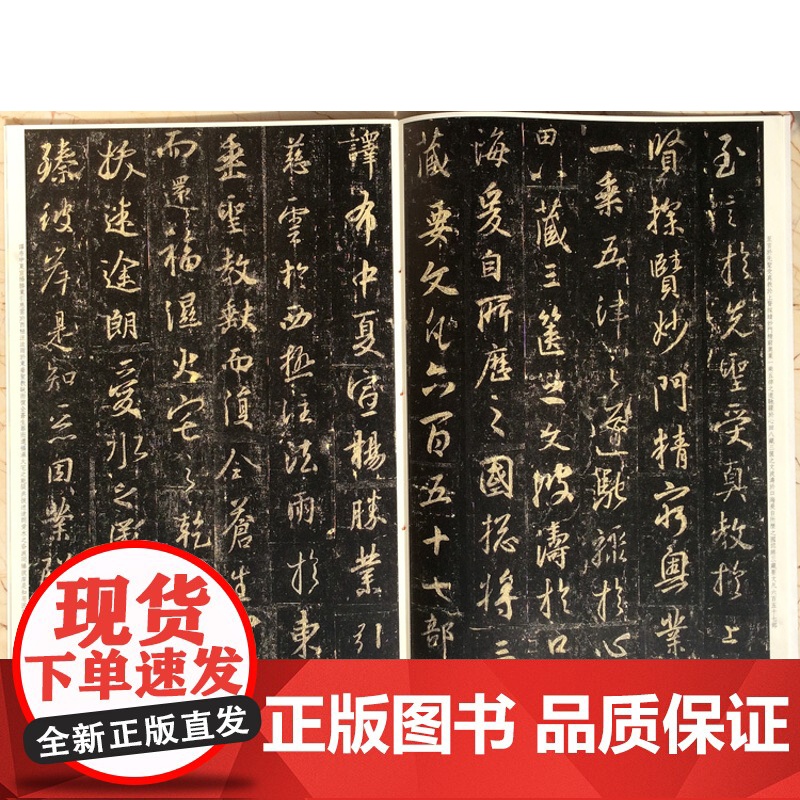 至言於先聖受真教於上
賢探賾妙門精窮奧業
一乘五律之道馳驟於心
田八藏三篋之文波濤於口
海爰自所歷之國揔將三
藏要文凡六百五十七部
譯布中夏宣揚勝業引
慈雲於西極注法雨於東
垂聖教缺而復全蒼生
而還福濕火宅之乾
拔迷途朗愛水之
臻彼岸是知惡因業
现货
全新正版直发
正版图书 品质保证